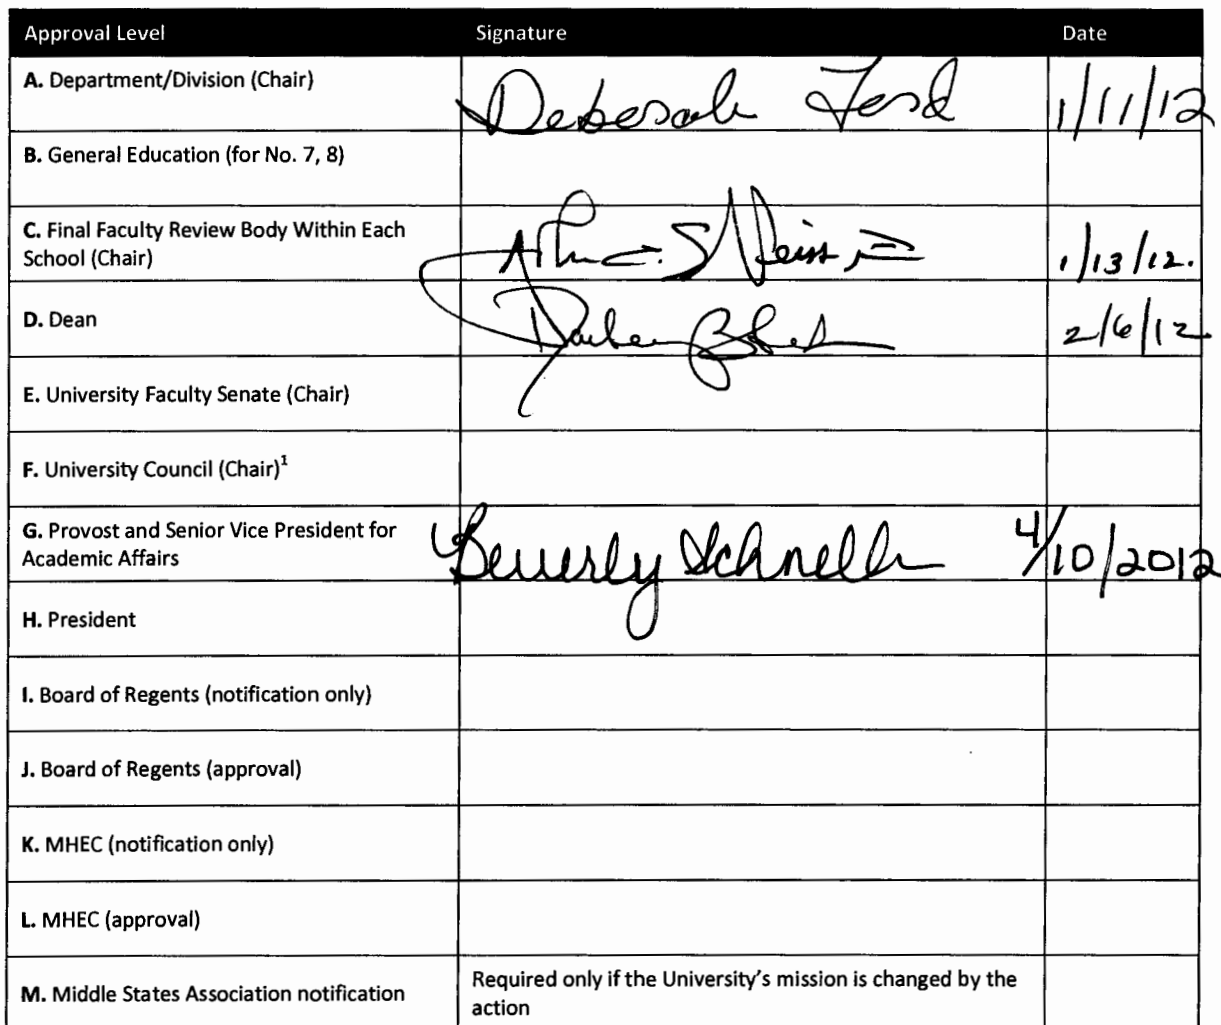 Approval Level Signature Date
A. Department/Division (Chair) Deborah Ford 1/11/12
B. General Education (for No. 7, 8)
C. Final Faculty Review Body Within Each
School (Chair) 1/13/12.
D. Dean 2/6/12
E. University Faculty Senate (Chair)
F. University Council (Chair)¹
G. Provost and Senior Vice President for
Academic Affairs Beverly Schnell 4/10/2012
H. President
I. Board of Regents (notification only)
J. Board of Regents (approval)
K. MHEC (notification only)
L. MHEC (approval)
M. Middle States Association notification Required only if the University's mission is changed by the
action